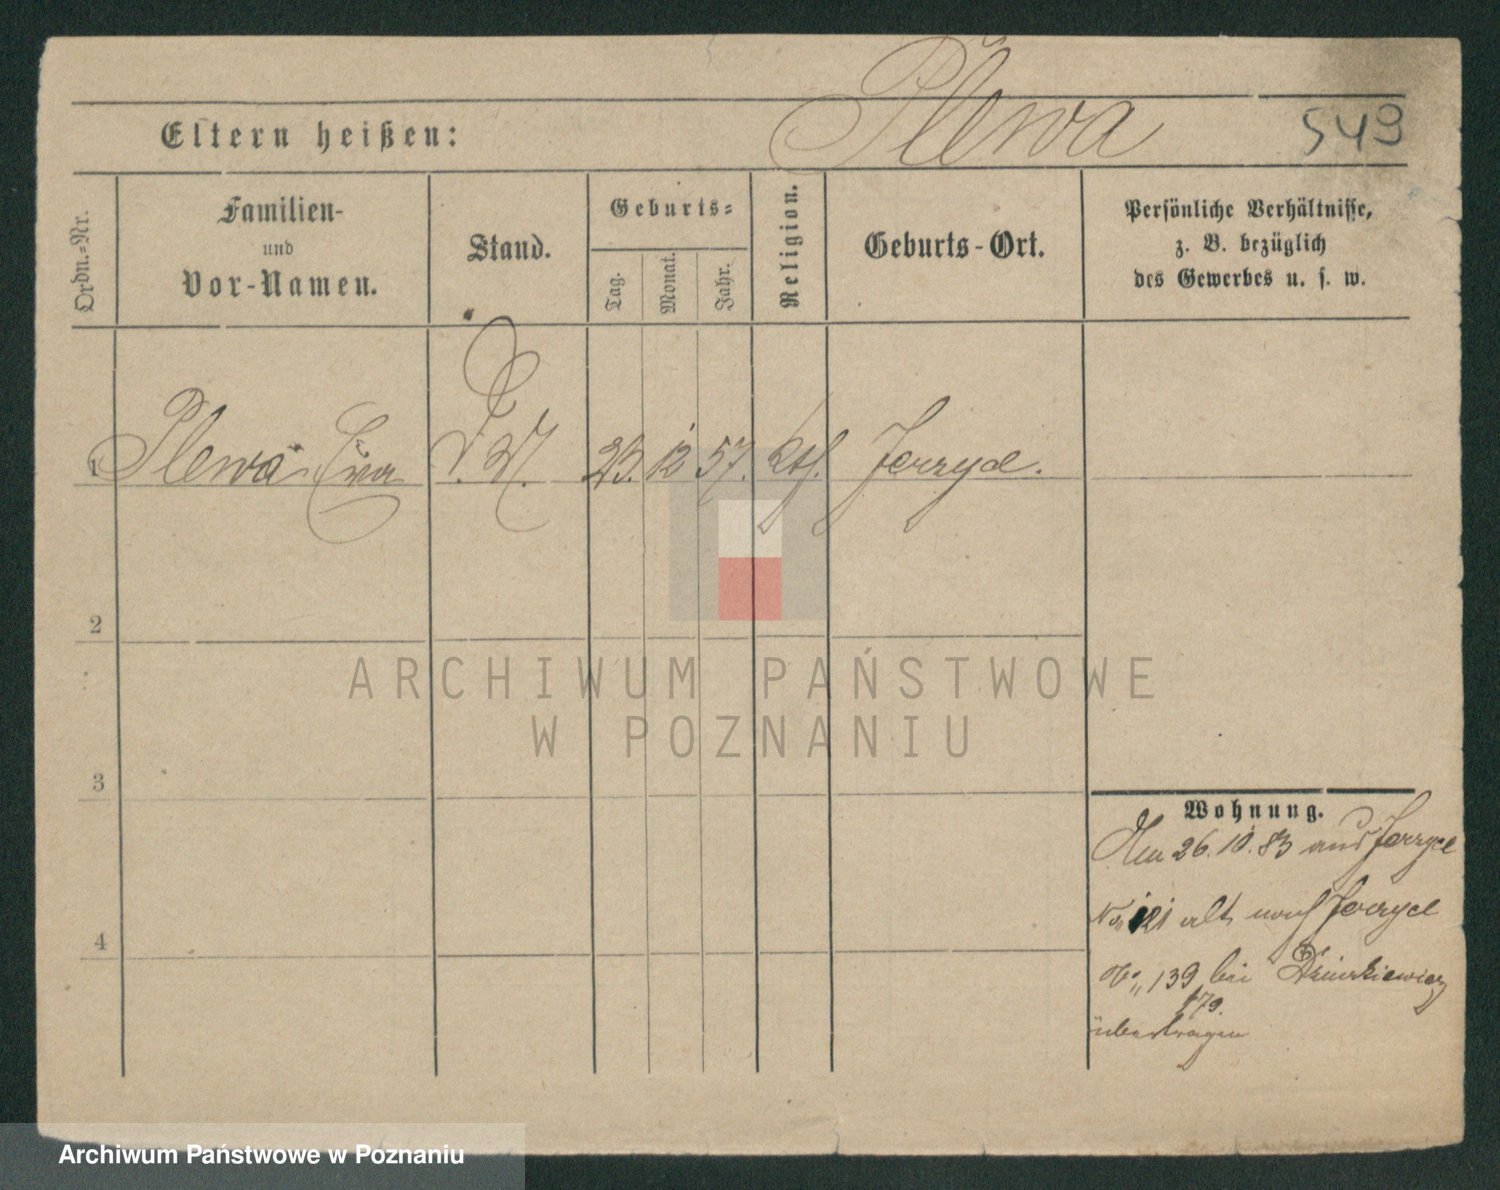 Plewa
549
Eltern heißen:
Ordn.-Nr.
Familien-
und
Vor-Namen.
Stand.
Geburts-
Tag.
Monat.
Jahr.
Religion.
Geburts-Ort.
Persönliche Verhältnisse,
z. B. bezüglich
des Gewerbes u. s. w.
1 Plewa Eva 23. 12 57. kth. Jerzyce.
2
3
4
Wohnung.
26. 10. 83 aus Jerzyce
No 121 alt, nach Jerzyce
No 139 bei
179.
übertragen
ARCHIWUM PAŃSTWOWE
W POZNANIU
Archiwum Państwowe w Poznaniu